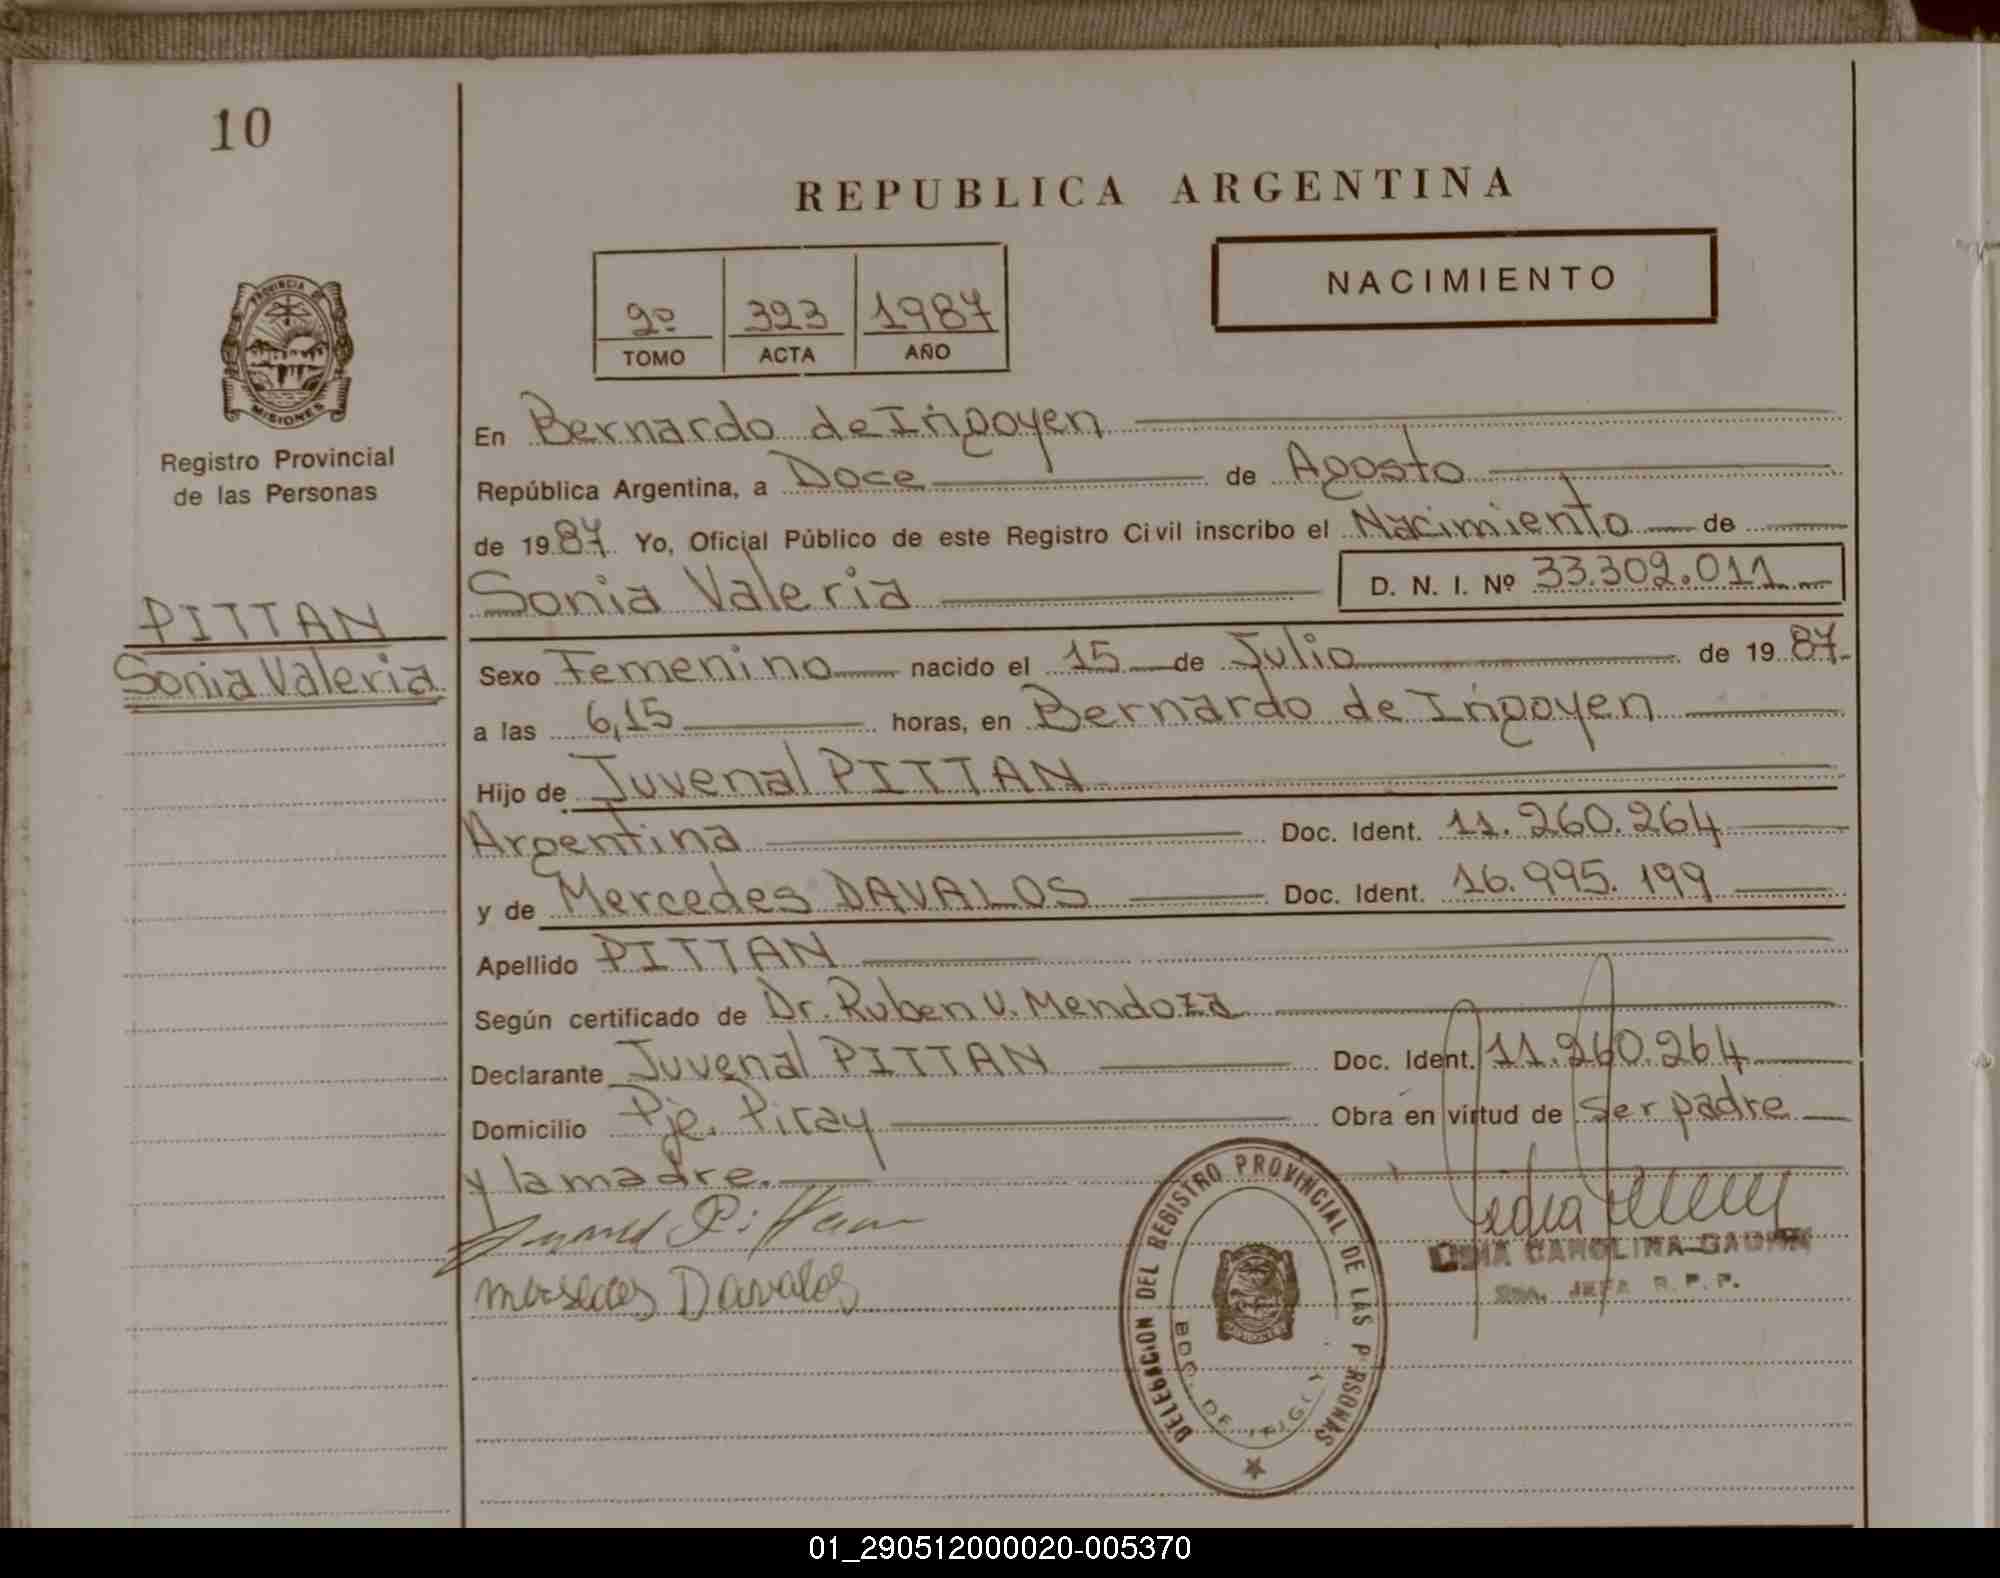 10
REPUBLICA ARGENTINA
NACIMIENTO
2º 323 1987
TOMO ACTA AÑO
PROVINCIA DE
MISIONES
Registro Provincial
de las Personas
En Bernardo de Irigoyen
República Argentina, a Doce de Agosto
de 1987 Yo, Oficial Público de este Registro Civil inscribo el Nacimiento de
Sonia Valeria D. N. I. Nº 33.302.011
PITTAN
Sonia Valeria
Sexo Femenino nacido el 15 de Julio de 1987
a las 6,15 horas, en Bernardo de Irigoyen
Hijo de Juvenal PITTAN
Argentina Doc. Ident. 11.260.264
y de Mercedes DAVALOS Doc. Ident. 16.995.199
Apellido PITTAN
Según certificado de Dr. Ruben V. Mendoza
Declarante Juvenal PITTAN Doc. Ident. 11.260.264
Domicilio Pje. Piray Obra en virtud de ser padre
y la madre.
Pittan
Davalos
DELEGACION DEL REGISTRO PROVINCIAL DE LAS P RSONAS
BDO. DE
MISIONES
CAROLINA
JEFA R. P. P.
01_290512000020-005370